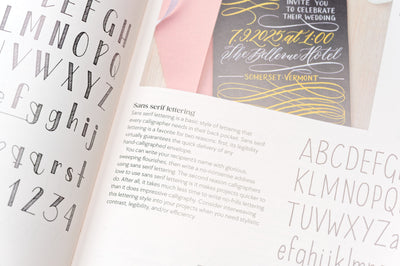 EFGH
LMNOP
TUVWX
YZ
efghij
qrst
1234
INVITE YOU
TO CELEBRATE
THEIR WEDDING
7.9.2025 at 1:00
The Bellevue Hotel
SOMERSET • VERMONT
Sans serif lettering
Sans serif lettering is a basic style of lettering that
every calligrapher needs in their back pocket. Sans serif
lettering is a favorite for two reasons: first, its legibility
virtually guarantees the quick delivery of any
hand-calligraphed envelope.
You can write your recipient's name with glorious,
sweeping flourishes, then write a no-nonsense address
using sans serif lettering. The second reason calligraphers
love to use sans serif is it makes projects quicker to
do. After all, it takes much less time to write no-frills lettering
than it does impressive calligraphy. Consider interweaving
this lettering style into your projects when you need stylistic
contrast, legibility, and/or efficiency.
ABCDEFG
KLMNOP
TUVWXYZ
efghijklm